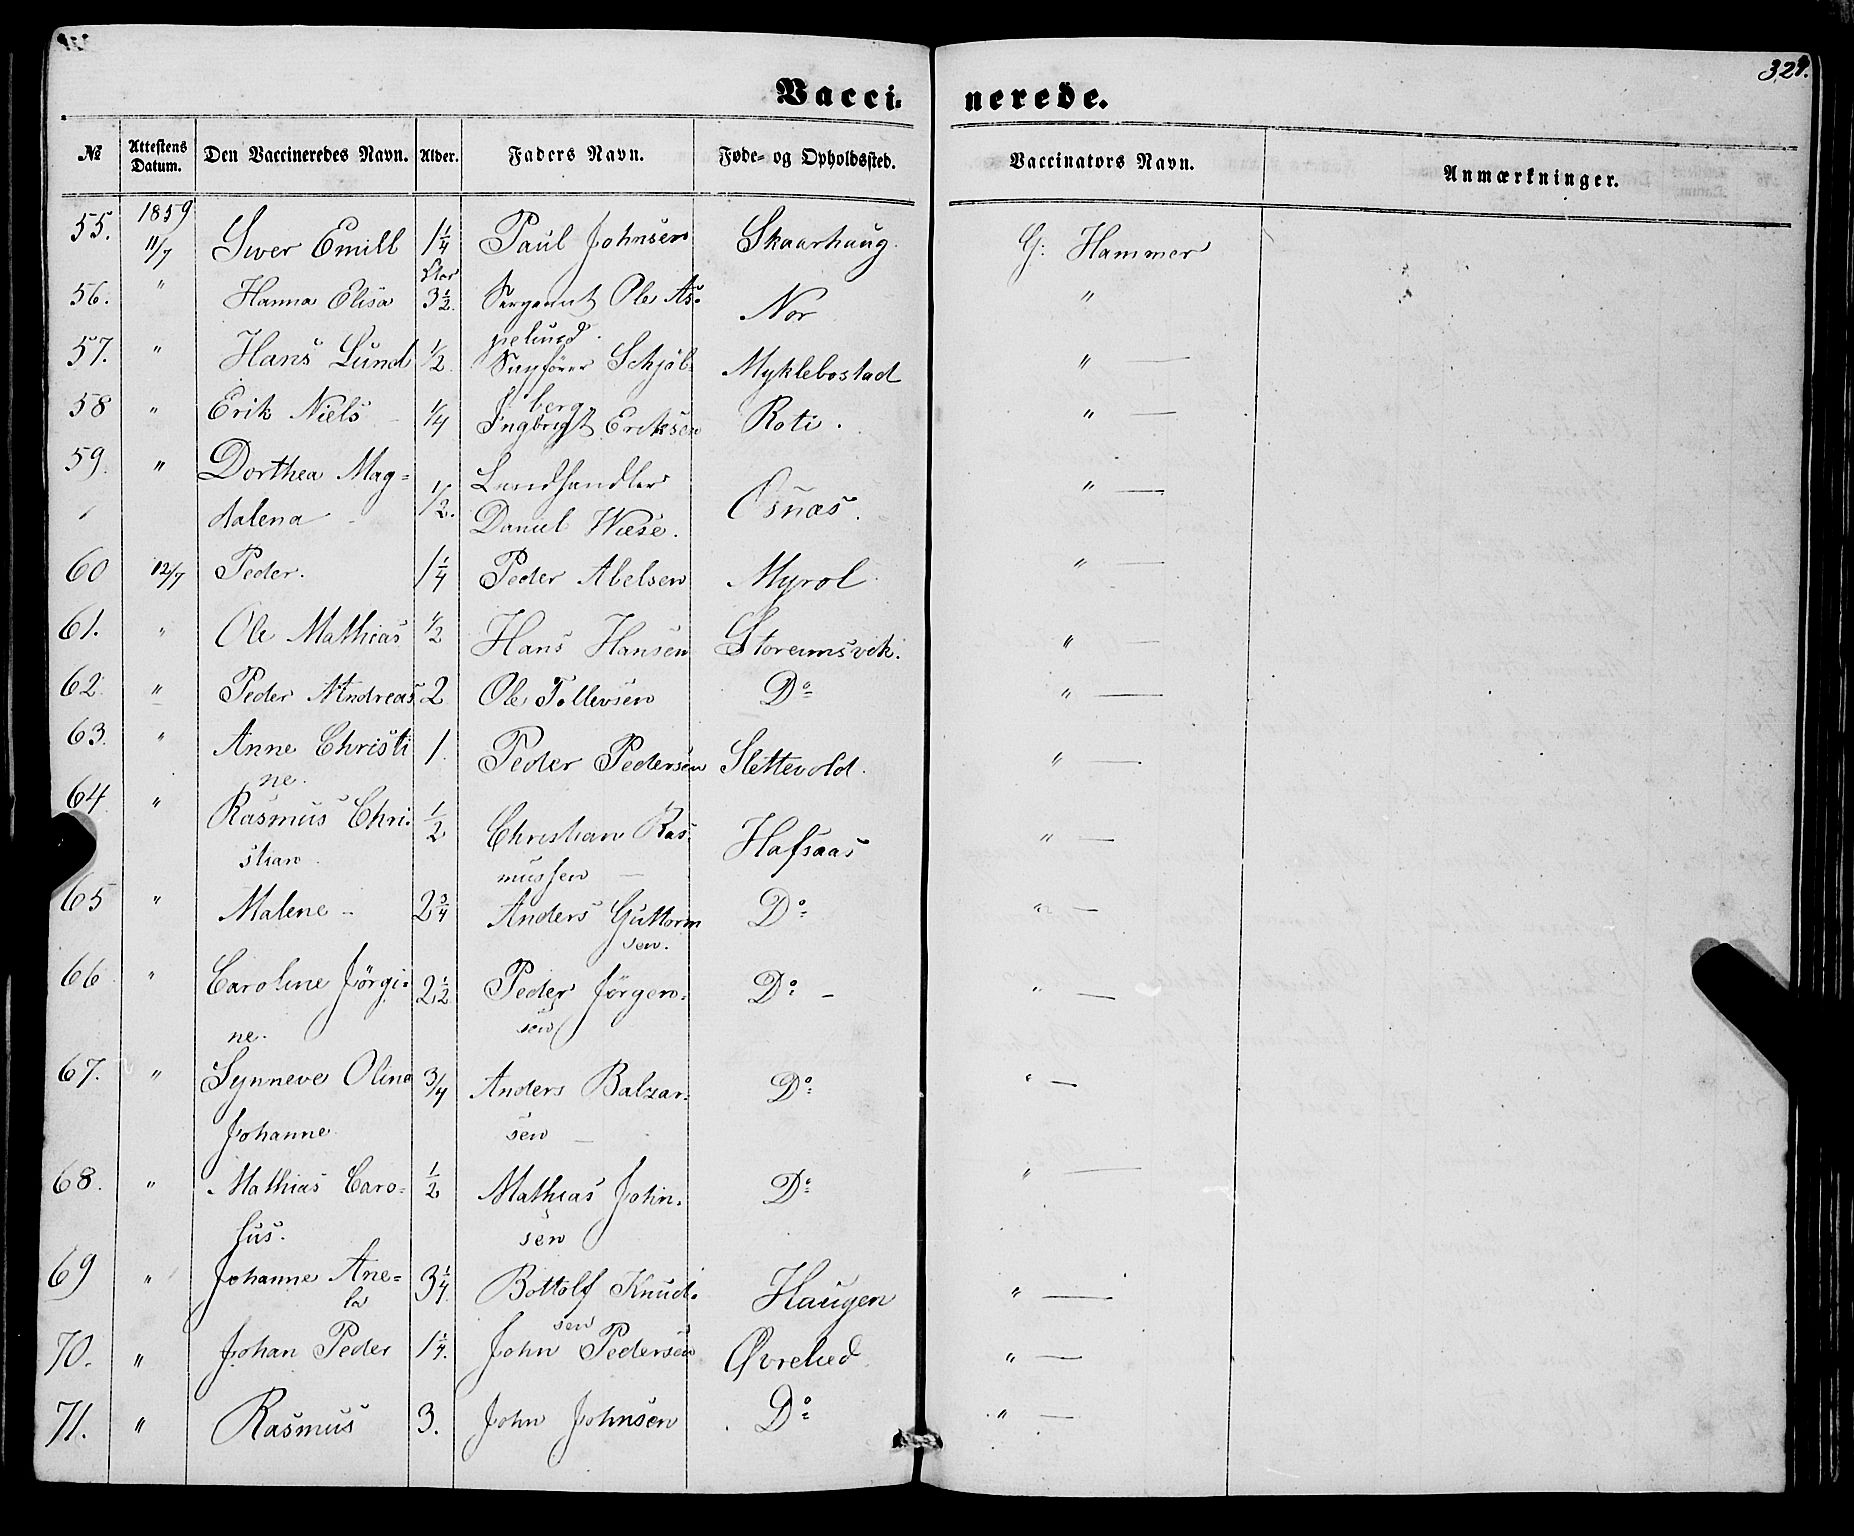 329.
Vacci- nerede.
№ Attestens Datum. Den Vaccineredes Navn. Alder. Faders Navn. Føde- og Opholdssted. Vaccinators Navn. Anmærkninger.
55. 1859 11/7 Iver Emill 1 1/4 Paul Johnsen Skaarhaug. G: Hammer
56. " Hanna Elisa 3 1/2 Sergeant Ole As-
pelund. Nor "
57. " Hans Lund 1/2 Schjøl-
berg Myklebostad " —
58 " Erik Niels 1/4 Ingbrigt Eriksen Roti. " —
59. " Dorthea Mag=
dalena 1/2. Landhandler
Daniel Wiese. Osnæs. " —
60 12/7 Peder. 1 1/4 Peder Abelsen Myrol " —
61. " Ole Mathias 1/2 Hans Hansen Storeimsvik. " —
62. " Peder Andreas 2 Ole Tollevsen Do " —
63. " Anne Christi
ne. 1. Peder Pedersen Slettevold. " —
64 " Rasmus Chri-
stian 1/2 Christian Ras-
mussen — Hafsaas " —
65 " Malene - 2 3/4 Anders Guttorm
sen. Do " —
66 " Caroline Jørgi-
ne. 2 1/2 Peder Jørgen-
sen Do - " —
67. " Synneve Olina
Johanne 3/4 Anders Balzar-
sen — Do " —
68. " Mathias Caro-
lus. 1/2 Mathias John-
sen Do " —
69 " Johanne Ane=
la 3 1/4. Bottolf Knud-
sen Haugen " —
70. " Johan Peder 1 1/4. John Pedersen Øvrelied. " —
71. " Rasmus 3. John Johnsen Do " —